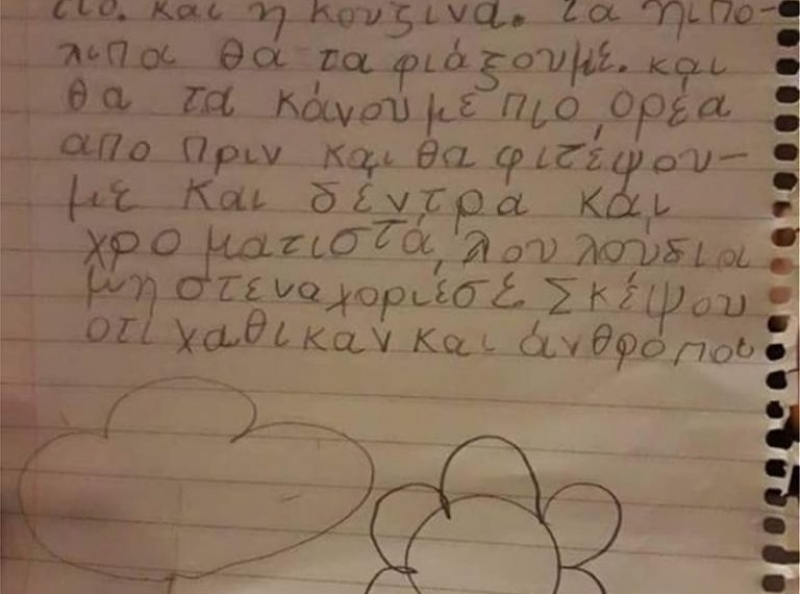 τιο. και η κουζινα. τα ηιπο-
λιπα θα τα φιάξουμε. και
θα τα κάνουμε πιο ορέα
απο πριν και θα φιτέψου-
με και δέντρα και
χρο ματιστά λουλούδια
μη στεναχοριέσε. Σκέψου
οτι χαθικαν και άνθροποι